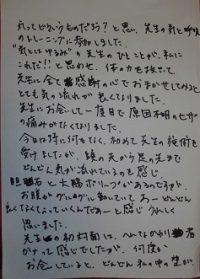 気ってどういうものだろう？と思い、先生の気と呼吸
のトレーニングに参加しました。
"気とはゆるみ"の先生のひとことが、私に
これだ!!と思わせ、体の力を抜いて
先生に全て感謝の心でおまかせしてみると
とても気の流れが良くなりました。
先生にお会いして一度目で原因不明の
の痛みがなくなりました。
今日は特に何もなく、初めて先生の施術を
受けましたが、頭の先から足の先まで
どんどん気が流れているのを感じ、
胆石と大腸ポリープがあるのですが、
お腹がグルグルと動いていて あーどんどん
良くなっていくんだなーと感じうれしく
思いました。
先生の初対面は、へんなかわり者
かなって感じでしたが、何度か
お会いしていると、どんどん私の中の